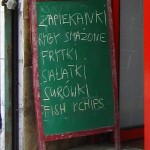 ZAPIEKANKI
RYBY SMAŻONE
FRYTKI
SAŁATKI
SURÓWKI
FISH Y CHIPS